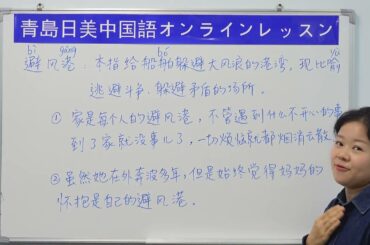 青島日美中国語オンラインレッスン
bì gǎng bó yù
避风港：本指给船舶躲避大风浪的港湾，现比喻
逃避斗争、躲避矛盾的场所。
① 家是每个人的避风港，不管遇到什么不开心的事
到了家就没事儿了，一切烦恼就都烟消云散
② 虽然她在外奔波多年，但是始终觉得妈妈的
怀抱是自己的避风港。